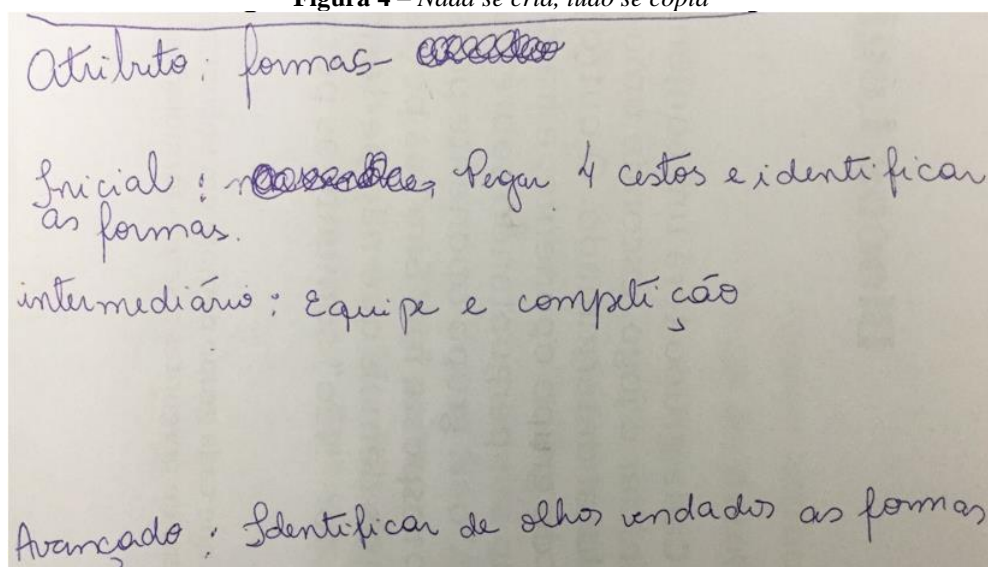 Figura 4 – Nada se cria, tudo se copia
Atributo: formas-
Inicial: Pegar 4 cestos e identificar
as formas.
intermediário: Equipe e competição
Avançado: Identificar de olhos vendados as formas